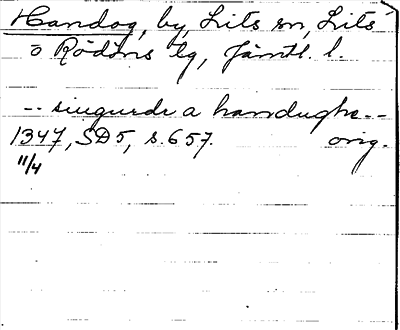 Handog, by, Lits sn, Lits
o Rödöns tg, Jämtl. l.
-- siugurdr a handughe --
1347, SD5, s. 657. orig.
11/4